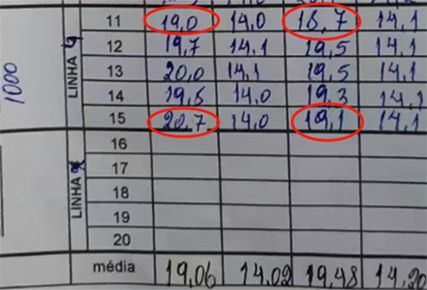 1000
LINHA
11 19,0 14,0 18,7 14,1
12 19,7 14,1 19,5 14,1
13 20,0 14,1 19,5 14,1
14 19,8 14,0 19,3 14,1
15 20,7 14,0 19,1 14,1
LINHA
16
17
18
19
20
média 19,06 14,02 19,48 14,20